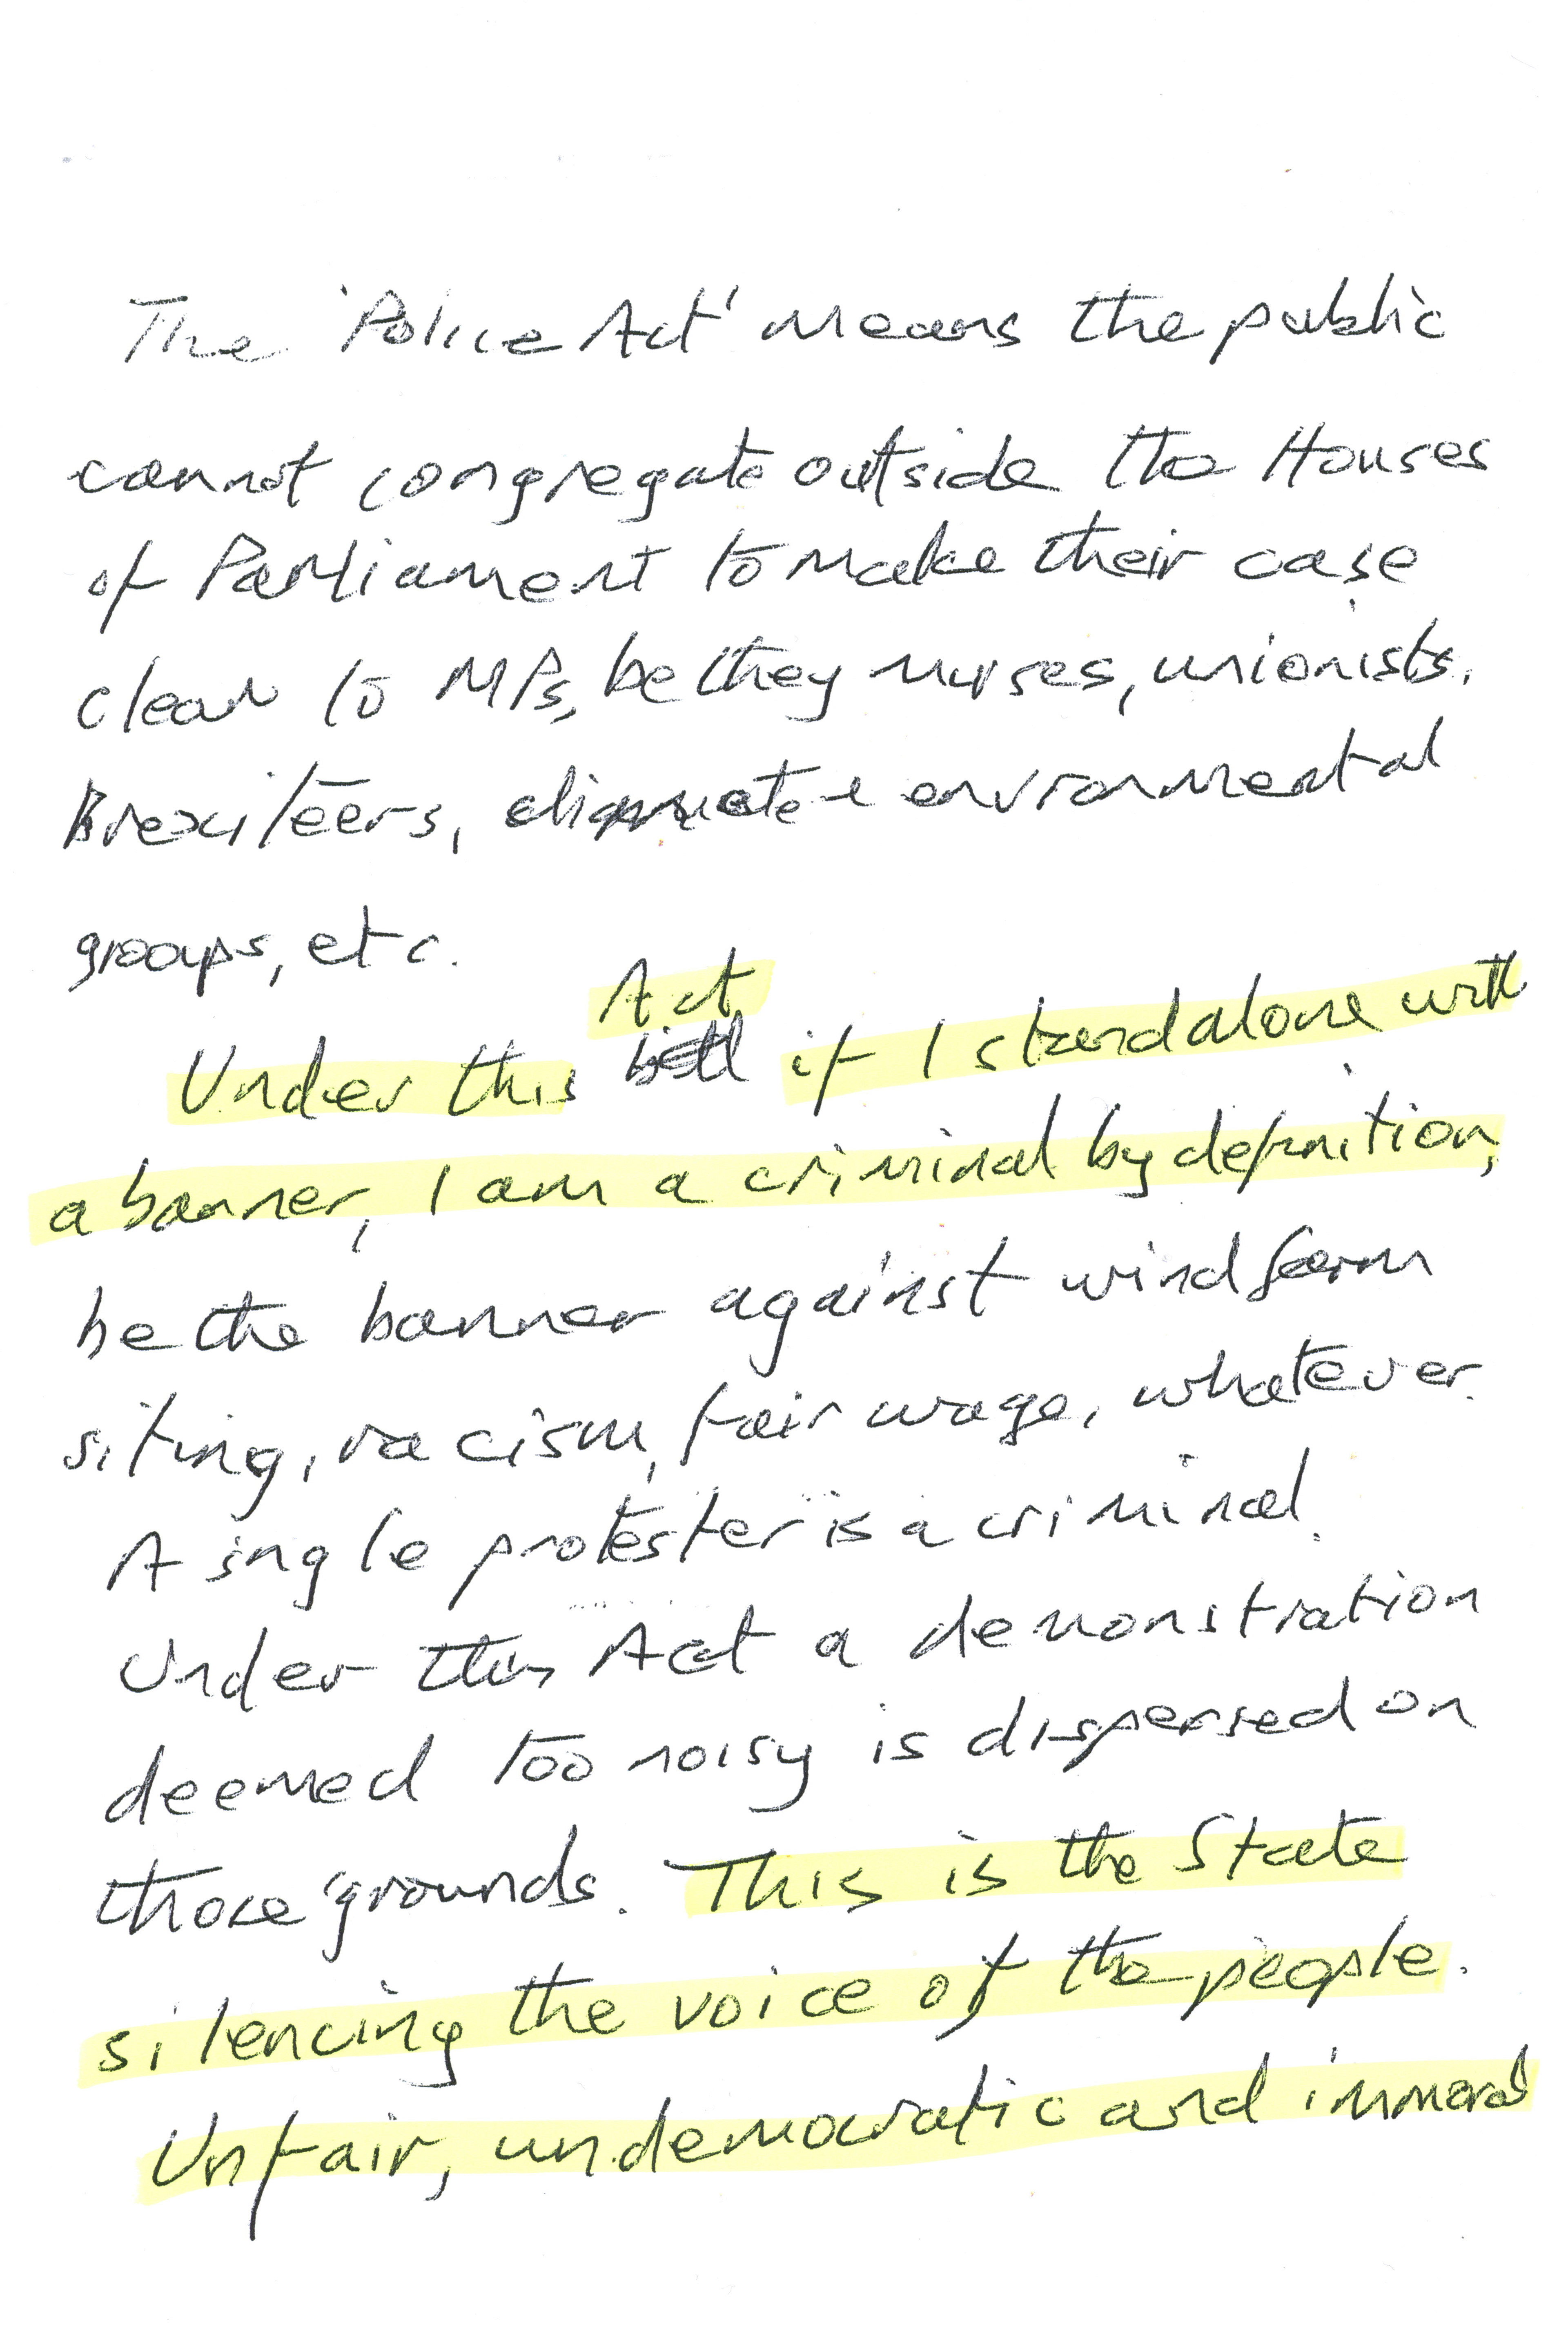 The 'Police Act' means the public
cannot congregate outside the Houses
of Parliament to make their case
clear to MPs, be they nurses, unionists,
Brexiteers, climate + environmental
groups, etc.
Act
Under this bill if I stand alone with
a banner, I am a criminal by definition,
be the banner against wind farm
siting, racism, fair wage, whatever.
A single protester is a criminal.
Under this Act a demonstration
deemed too noisy is dispersed on
those grounds. This is the State
silencing the voice of the people.
Unfair, undemocratic and immoral